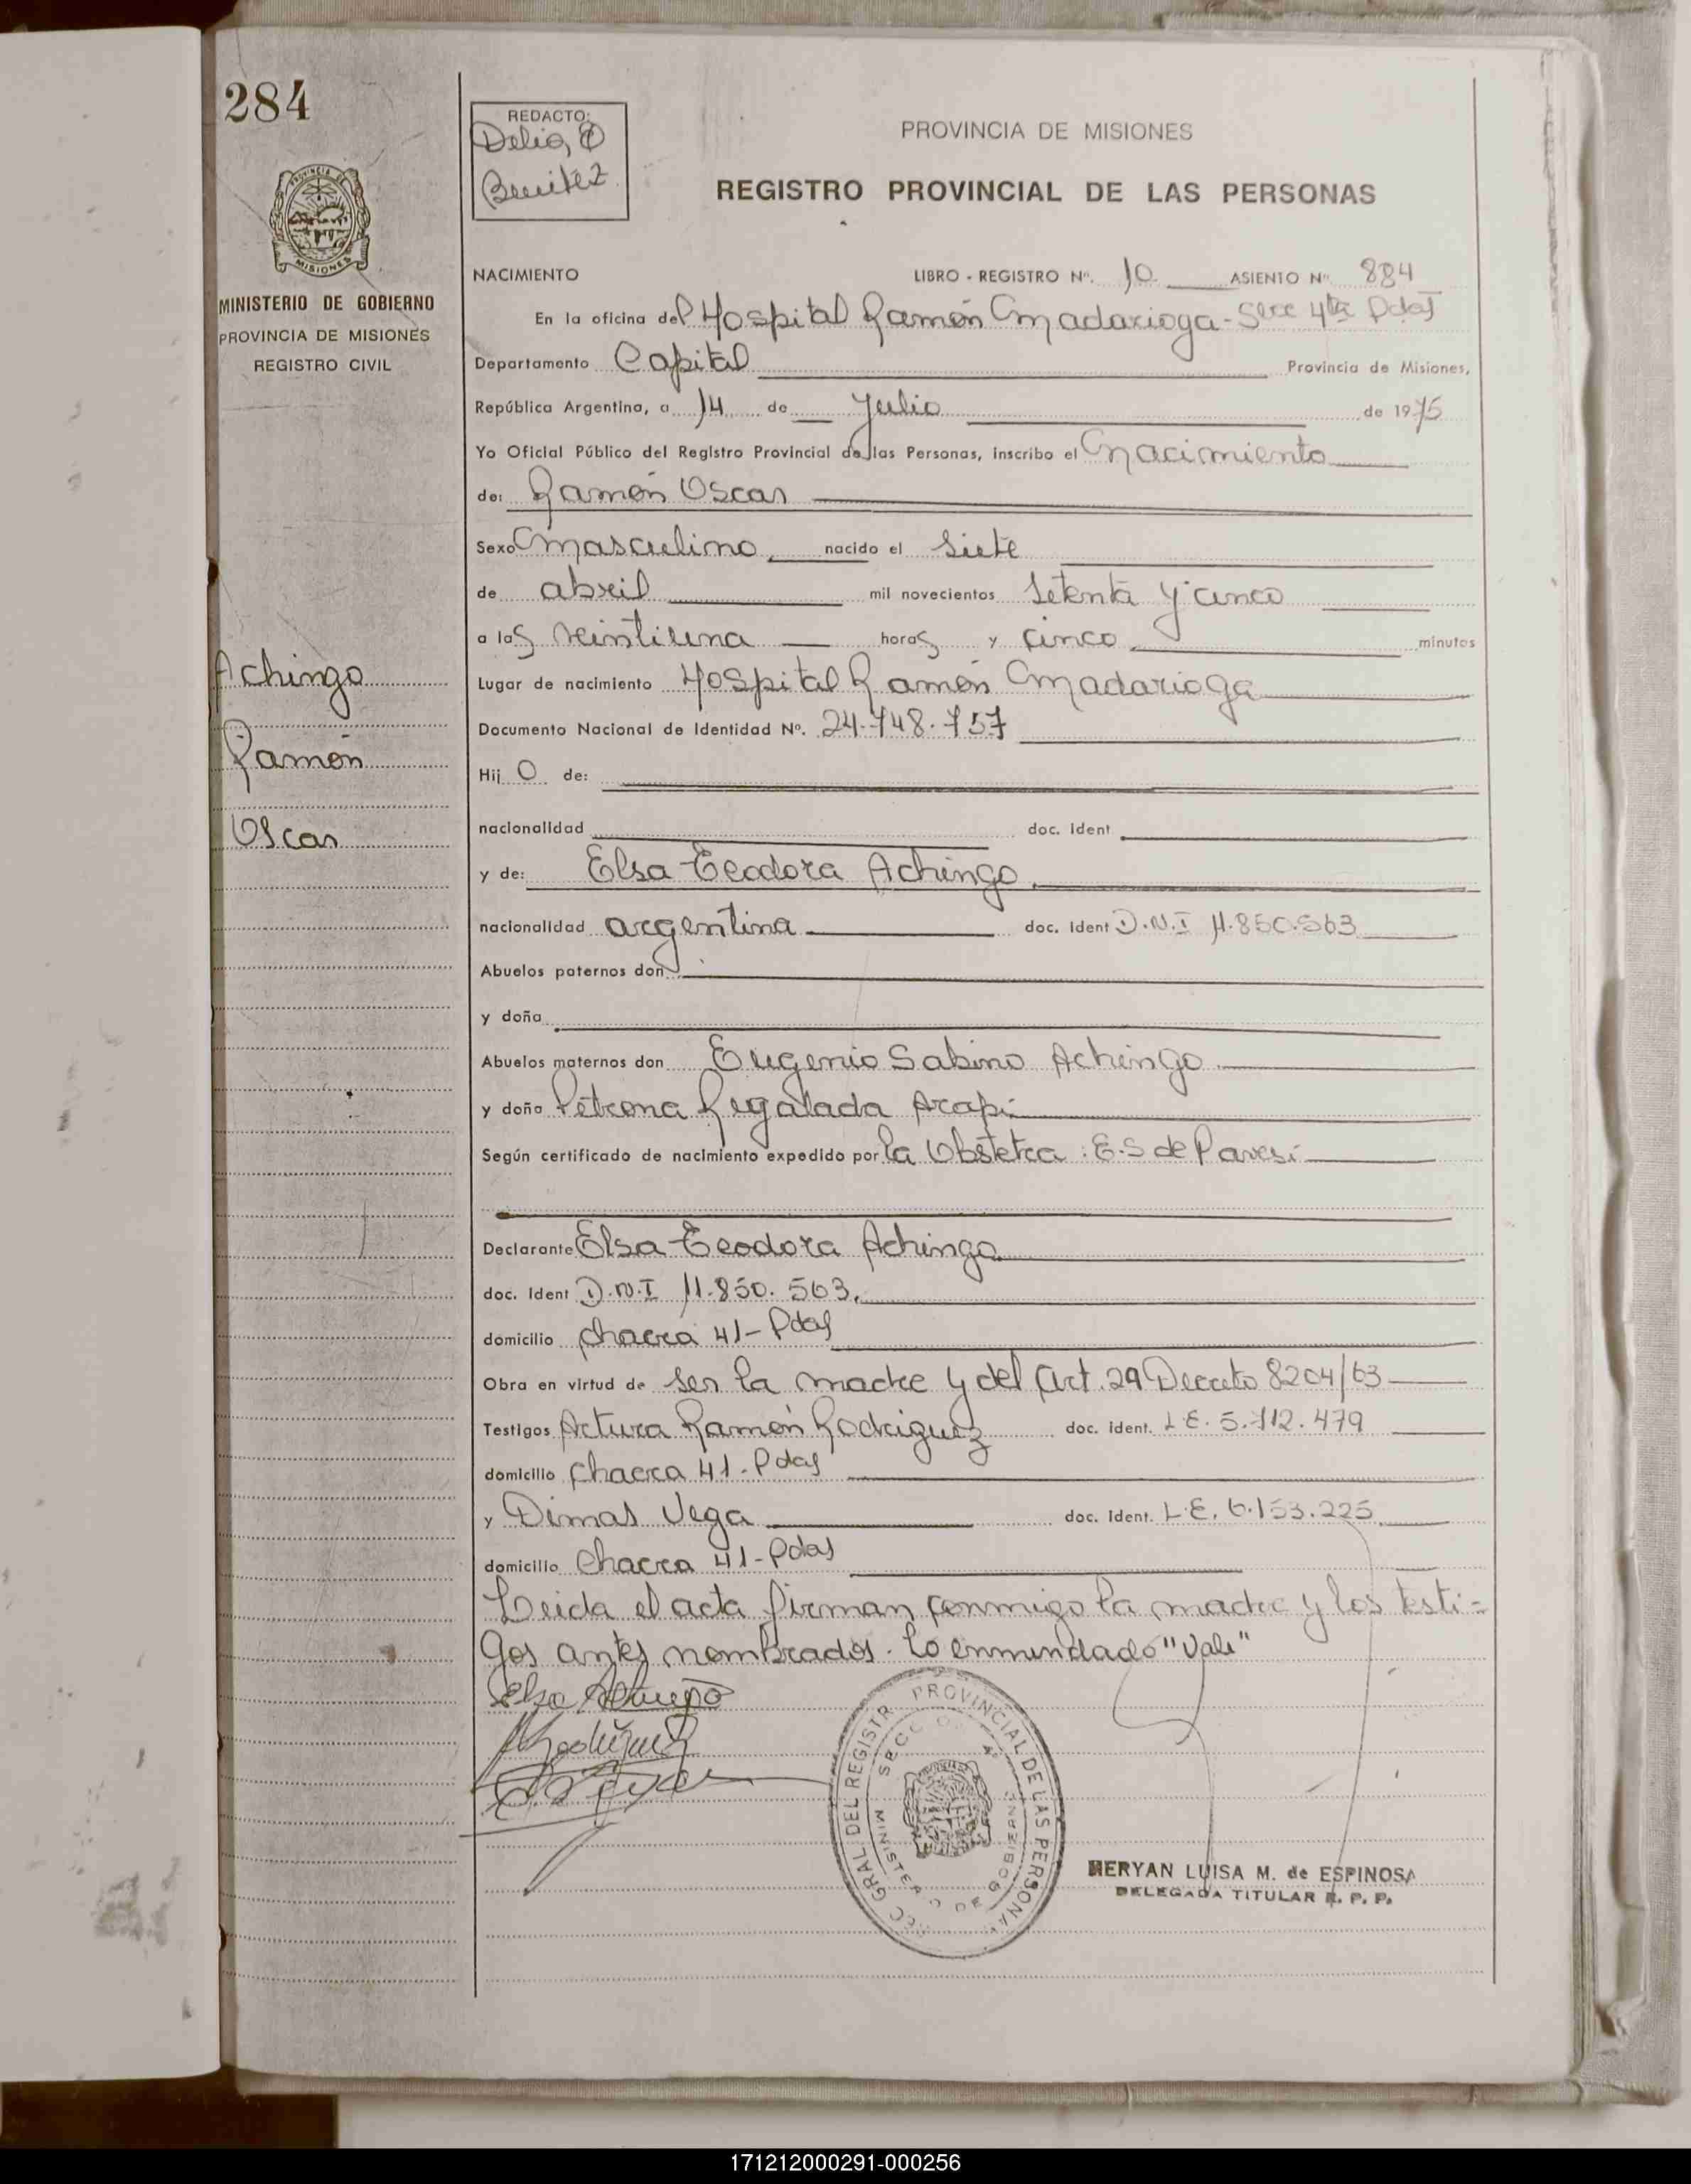 284
REDACTO:
Delia, O
Benitez
PROVINCIA DE MISIONES
REGISTRO PROVINCIAL DE LAS PERSONAS
PROVINCIA DE
MISIONES
MINISTERIO DE GOBIERNO
PROVINCIA DE MISIONES
REGISTRO CIVIL
NACIMIENTO LIBRO - REGISTRO Nº. 10 ASIENTO Nº 884
En la oficina del Hospital Ramón Madariaga - Secc 4ta Pdas
Departamento Capital Provincia de Misiones,
República Argentina, a 14 de Julio de 1975
Yo Oficial Público del Registro Provincial de las Personas, inscribo el Nacimiento
de: Ramón Oscar
Sexo Masculino, nacido el Siete
de abril mil novecientos Setenta y cinco
a las veintiuna horas y cinco minutos
Achingo
Ramón
Oscar
Lugar de nacimiento Hospital Ramón Madariaga
Documento Nacional de Identidad Nº. 24.748.757
Hij o de:
nacionalidad doc. ident
y de: Elsa Teodora Achingo
nacionalidad argentina doc. ident D.N.I 11.850.563
Abuelos paternos don
y doña
Abuelos maternos don Eugenio Sabino Achingo
y doña Petrona Regalada Arapi
Según certificado de nacimiento expedido por la Obstetra: E.S de Pavesi
Declarante Elsa Teodora Achingo
doc. ident D.N.I 11.850.563,
domicilio chacra 41- Pdas
Obra en virtud de ser la madre y del Art. 29 Decreto 8204/63
Testigos Arturo Ramón Rodriguez doc. ident. L.E. 5.712.479
domicilio chacra 41- Pdas
y Dimas Vega doc. ident. L.E. 6.153.225
domicilio chacra 41- Pdas
Leida el acta firman conmigo la madre y los testi=
gos antes nombrados. Lo enmendado "Vale"
Elsa Achingo
ARodriguez
GRAL DEL REGISTR PROVINCIAL DE LAS PERSONA
SECC 4ª
MINISTERIO DE GOBIERNO
MERYAN LUISA M. de ESPINOSA
DELEGADA TITULAR R. P. P.
171212000291-000256